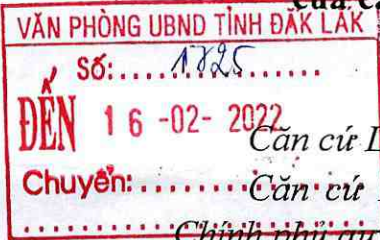 của C
VĂN PHÒNG UBND TỈNH ĐĂK LĂK
Số:.....1725.........
ĐẾN 16 -02- 2022
Căn cứ L
Chuyển:....... Căn cứ
Chính phủ qu